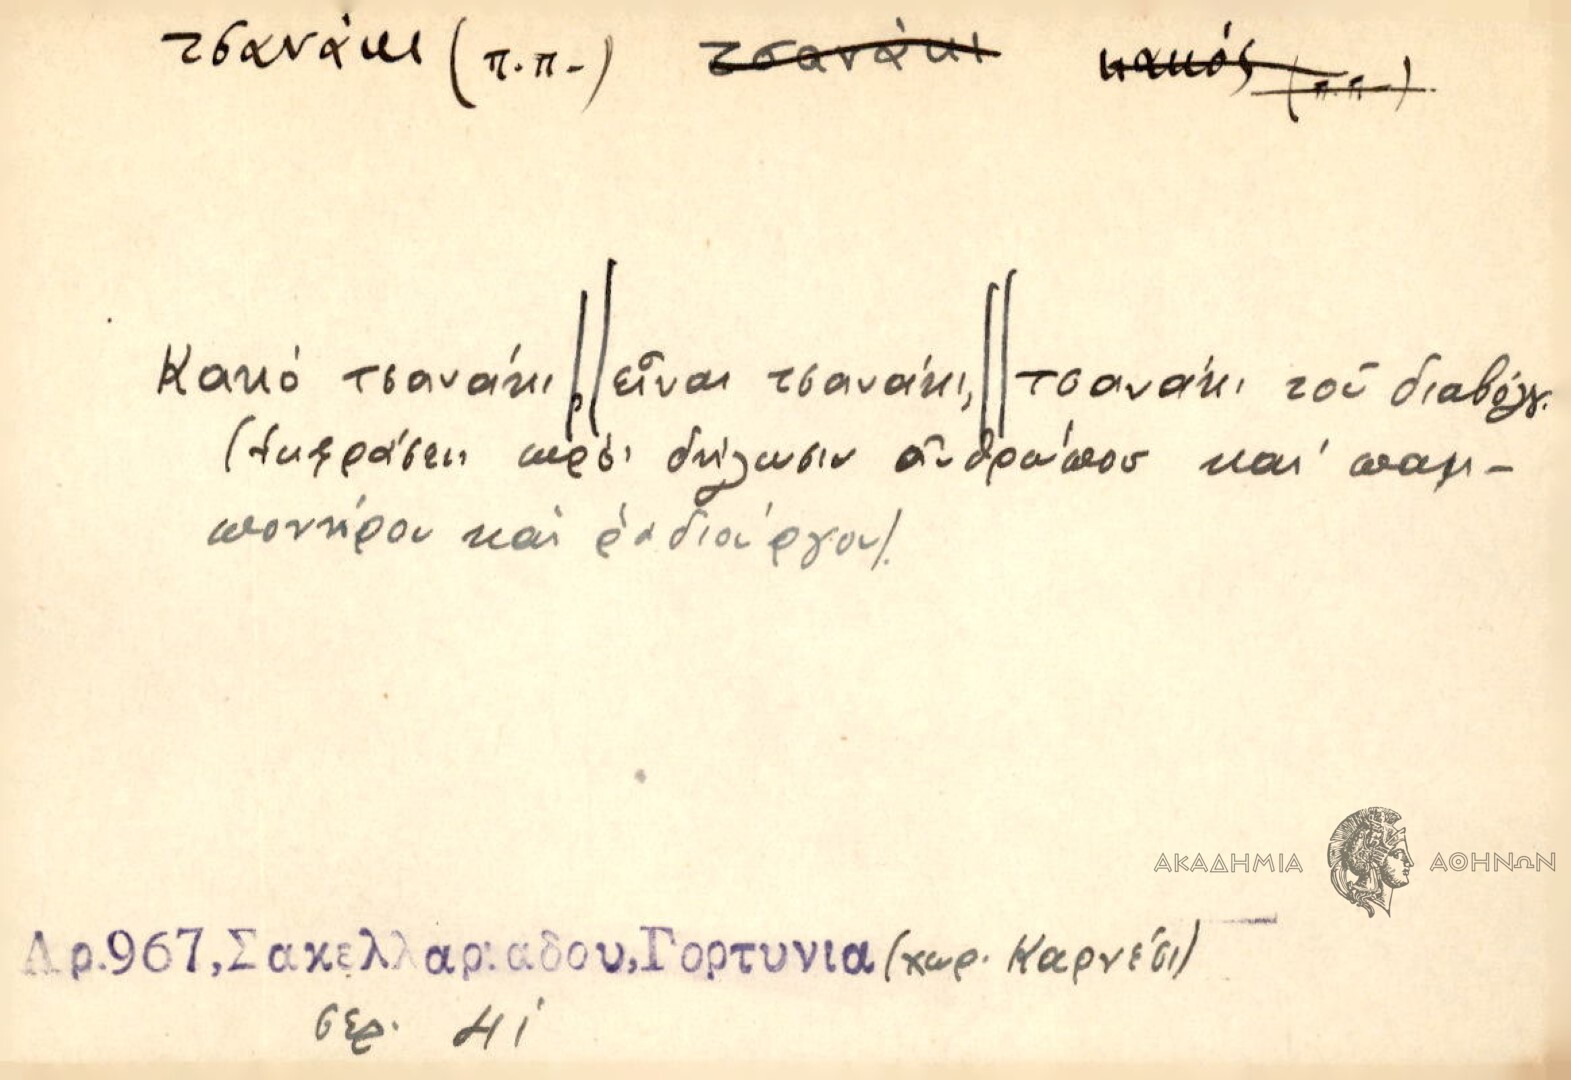 τσανάκι (π.π-) τσανάκι κακός (π.π-).
Κακό τσανάκι, // εἶναι τσανάκι, // τσανάκι τοῦ διαβόλου.
(ἐκφράσεις πρὸς δήλωσιν ἀνθρώπου καὶ παμ-
πονήρου καὶ ῥᾳδιούργου).
ΑΚΑΔΗΜΙΑ ΑΘΗΝΩΝ
Αρ.967, Σακελλαριαδου, Γορτυνια (χωρ. Καρνέσι)
σελ. 41